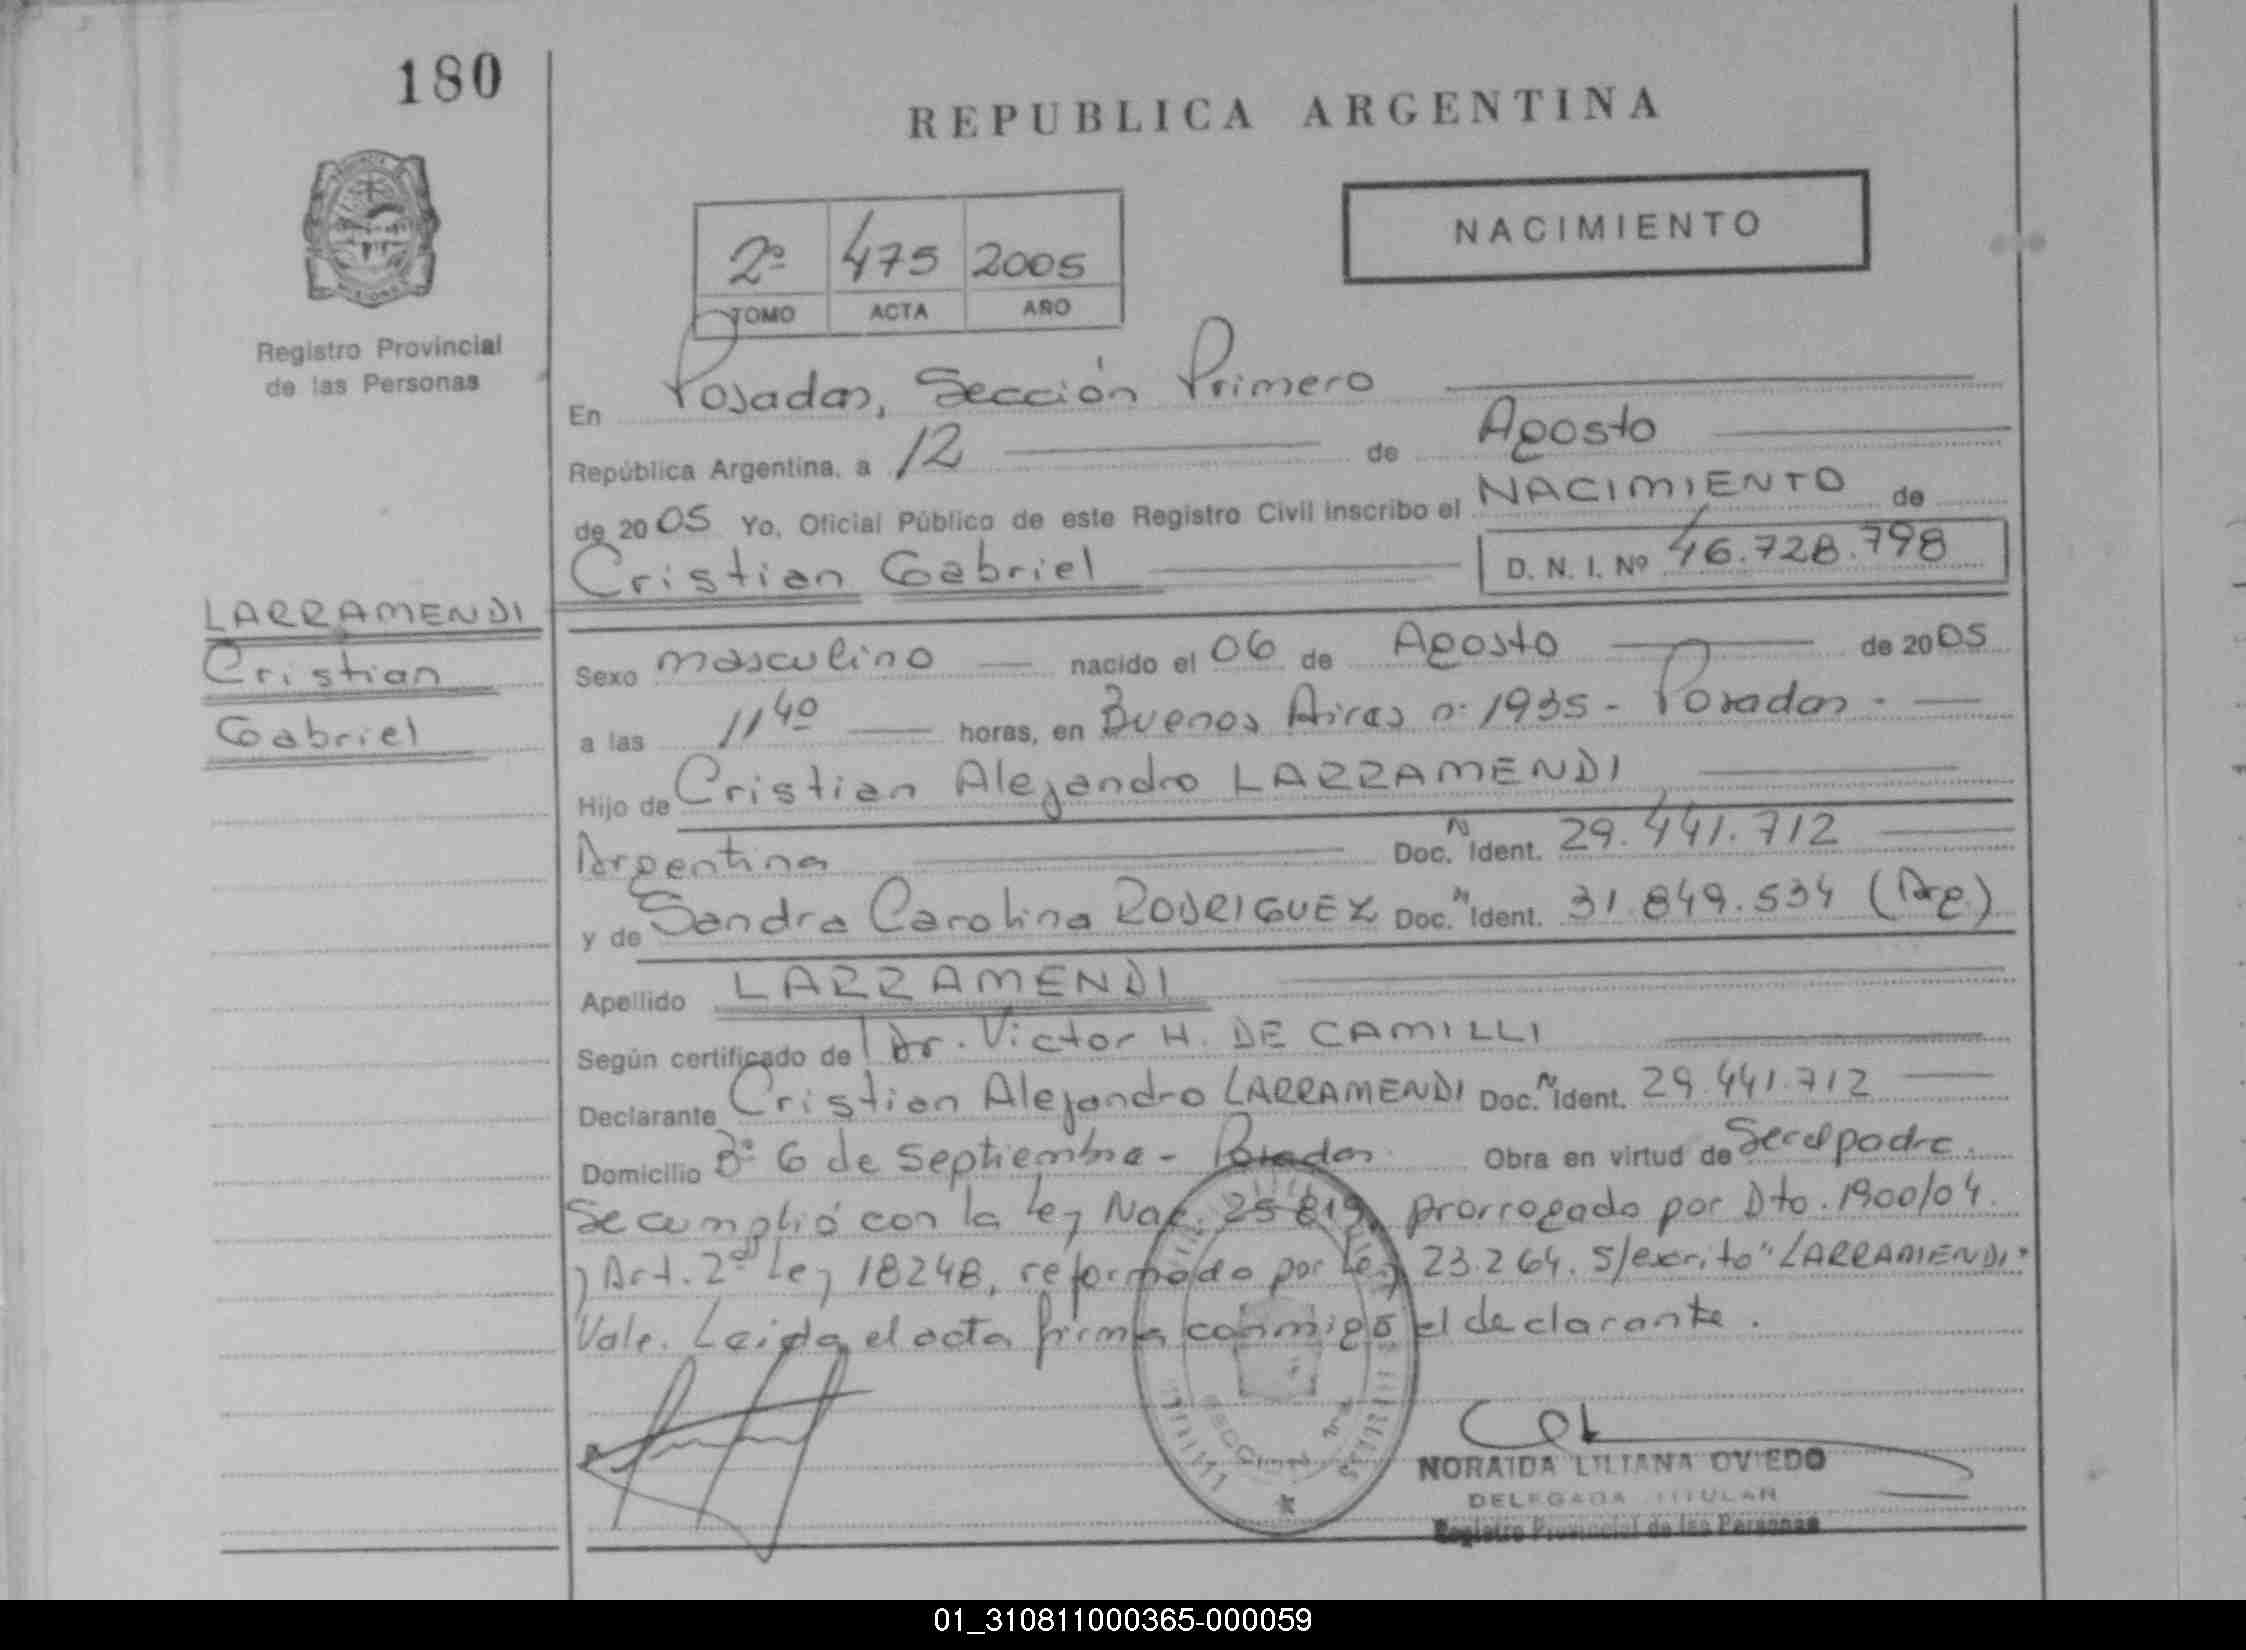 180
REPUBLICA ARGENTINA
NACIMIENTO
2º 475 2005
TOMO ACTA AÑO
Registro Provincial
de las Personas
En Posadas, Sección Primera
República Argentina, a 12 de Agosto
de 2005 Yo, Oficial Público de este Registro Civil inscribo el NACIMIENTO de
Cristian Gabriel D. N. I. Nº 46.728.798
LARRAMENDI
Cristian
Gabriel
Sexo masculino nacido el 06 de Agosto de 2005
a las 11 40 horas, en Buenos Aires nº 1935 - Posadas -
Hijo de Cristian Alejandro LARRAMENDI
Argentina Doc. N Ident. 29.441.712
y de Sandra Carolina RODRIGUEZ Doc. N Ident. 31.849.534 (Arg.)
Apellido LARRAMENDI
Según certificado de Dr. Victor H. DE CAMILLI
Declarante Cristian Alejandro LARRAMENDI Doc. N Ident. 29.441.712
Domicilio Bº 6 de Septiembre - Posadas Obra en virtud de Ser el padre.
Se cumplió con la Ley Nac. 25819, prorrogado por Dto. 1900/04.
y Art. 2º Ley 18248, reformado por Ley 23.264. S/escrito "LARRAMENDI"
Vale. Leída el acta firma conmigo el declarante.
SECCION 1ra
NORAIDA LILIANA OVIEDO
DELEGADA TITULAR
Registro Provincial de las Personas
01_310811000365-000059